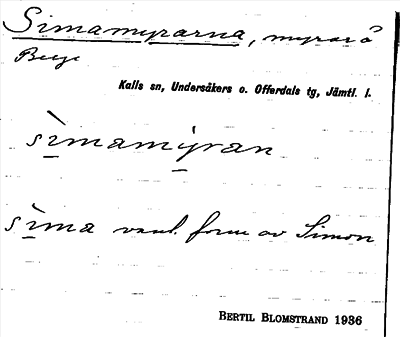 Simamyrarna, myrar å
Berge
Kalls sn, Undersåkers o. Offerdals tg, Jämtl. l.
sìmamýran
sìma vanl. form av Simon
BERTIL BLOMSTRAND 1936